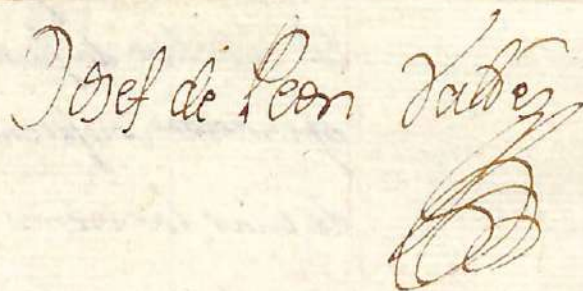 Josef de Leon Valdes